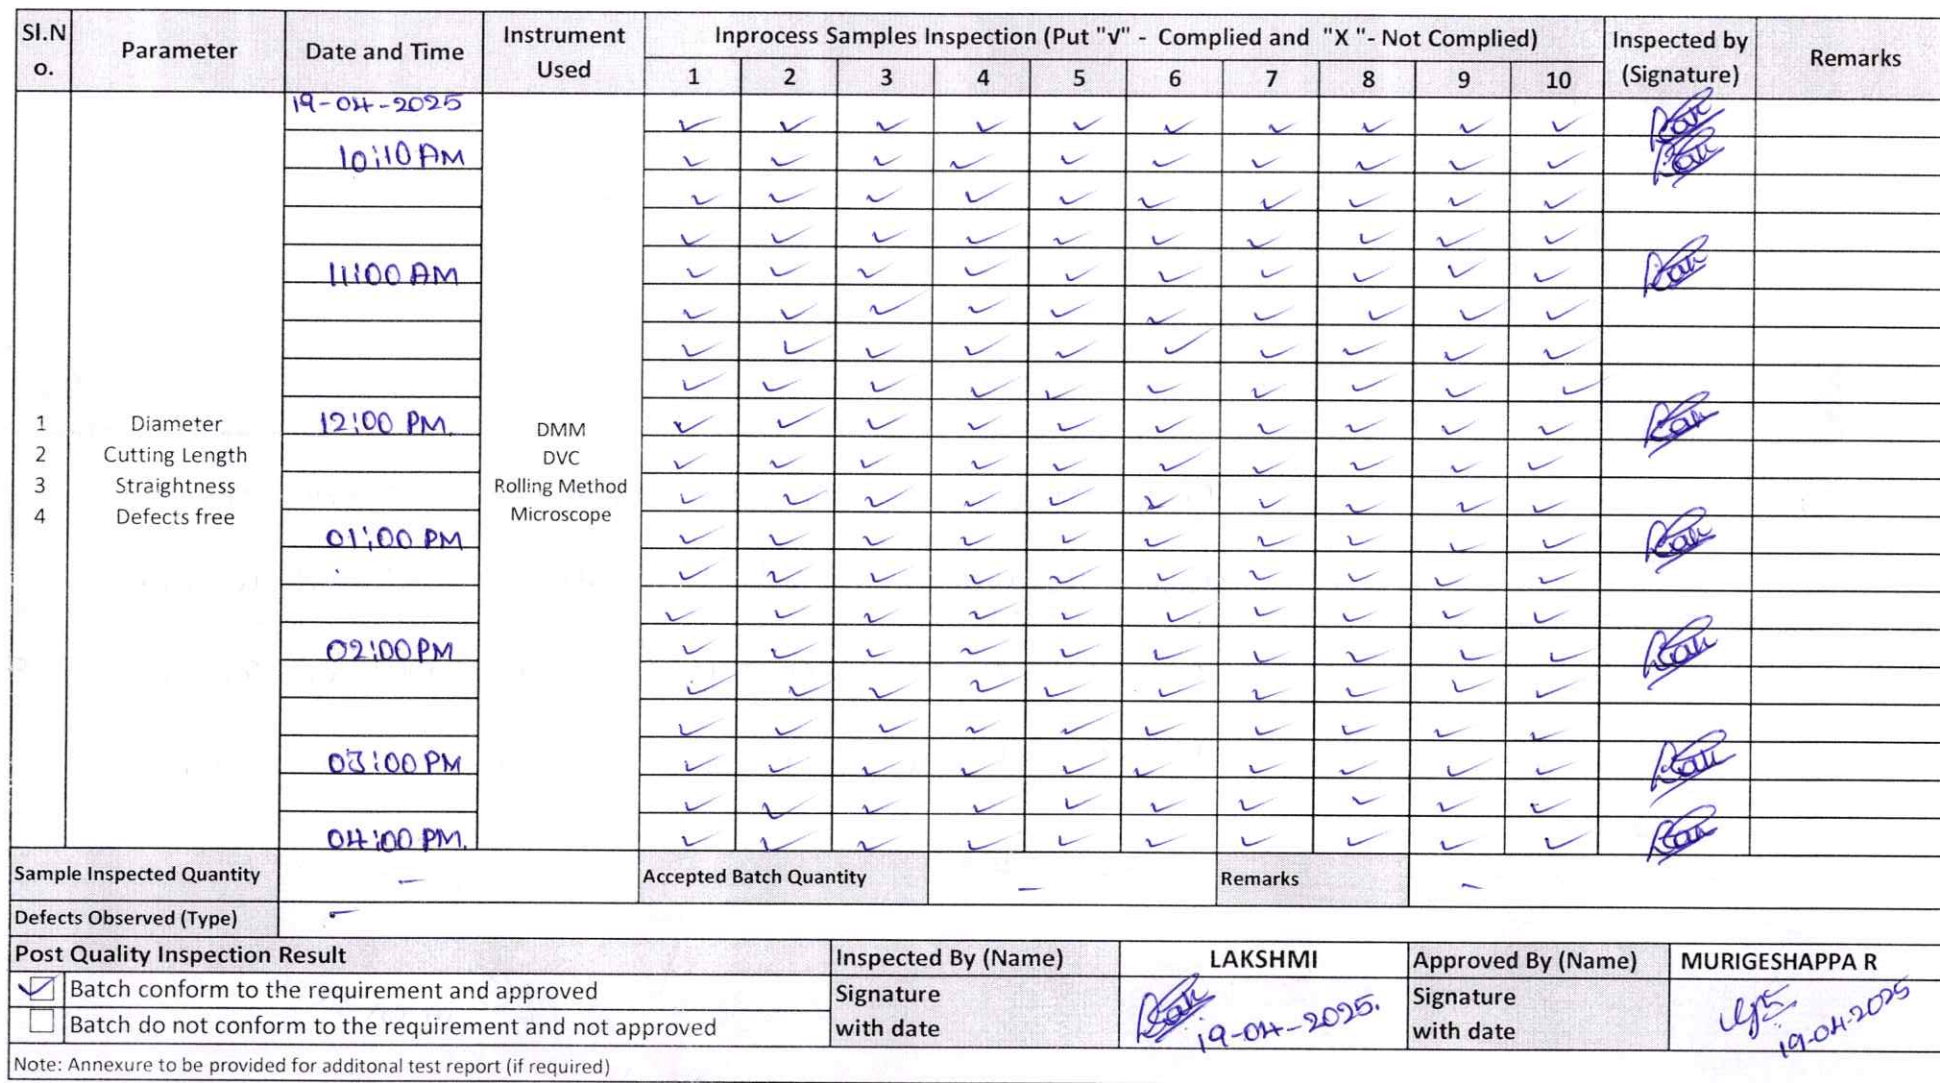 Sl.No. Parameter Date and Time Instrument Used Inprocess Samples Inspection (Put "√" - Complied and "X "- Not Complied) Inspected by (Signature) Remarks
1 2 3 4 5 6 7 8 9 10
19-04-2025
✓ ✓ ✓ ✓ ✓ ✓ ✓ ✓ ✓ ✓
10:10 AM ✓ ✓ ✓ ✓ ✓ ✓ ✓ ✓ ✓ ✓
✓ ✓ ✓ ✓ ✓ ✓ ✓ ✓ ✓ ✓
✓ ✓ ✓ ✓ ✓ ✓ ✓ ✓ ✓ ✓
11:00 AM ✓ ✓ ✓ ✓ ✓ ✓ ✓ ✓ ✓ ✓
✓ ✓ ✓ ✓ ✓ ✓ ✓ ✓ ✓ ✓
✓ ✓ ✓ ✓ ✓ ✓ ✓ ✓ ✓ ✓
✓ ✓ ✓ ✓ ✓ ✓ ✓ ✓ ✓ ✓
1 Diameter 12:00 PM. DMM ✓ ✓ ✓ ✓ ✓ ✓ ✓ ✓ ✓ ✓
2 Cutting Length DVC ✓ ✓ ✓ ✓ ✓ ✓ ✓ ✓ ✓ ✓
3 Straightness Rolling Method ✓ ✓ ✓ ✓ ✓ ✓ ✓ ✓ ✓ ✓
4 Defects free Microscope
01:00 PM ✓ ✓ ✓ ✓ ✓ ✓ ✓ ✓ ✓ ✓
✓ ✓ ✓ ✓ ✓ ✓ ✓ ✓ ✓ ✓
✓ ✓ ✓ ✓ ✓ ✓ ✓ ✓ ✓ ✓
02:00 PM ✓ ✓ ✓ ✓ ✓ ✓ ✓ ✓ ✓ ✓
✓ ✓ ✓ ✓ ✓ ✓ ✓ ✓ ✓ ✓
✓ ✓ ✓ ✓ ✓ ✓ ✓ ✓ ✓ ✓
03:00 PM ✓ ✓ ✓ ✓ ✓ ✓ ✓ ✓ ✓ ✓
✓ ✓ ✓ ✓ ✓ ✓ ✓ ✓ ✓ ✓
04:00 PM. ✓ ✓ ✓ ✓ ✓ ✓ ✓ ✓ ✓ ✓
Sample Inspected Quantity - Accepted Batch Quantity - Remarks -
Defects Observed (Type) -
Post Quality Inspection Result Inspected By (Name) LAKSHMI Approved By (Name) MURIGESHAPPA R
☑ Batch conform to the requirement and approved Signature with date 19-04-2025. Signature with date 19-04-2025
☐ Batch do not conform to the requirement and not approved
Note: Annexure to be provided for additonal test report (if required)